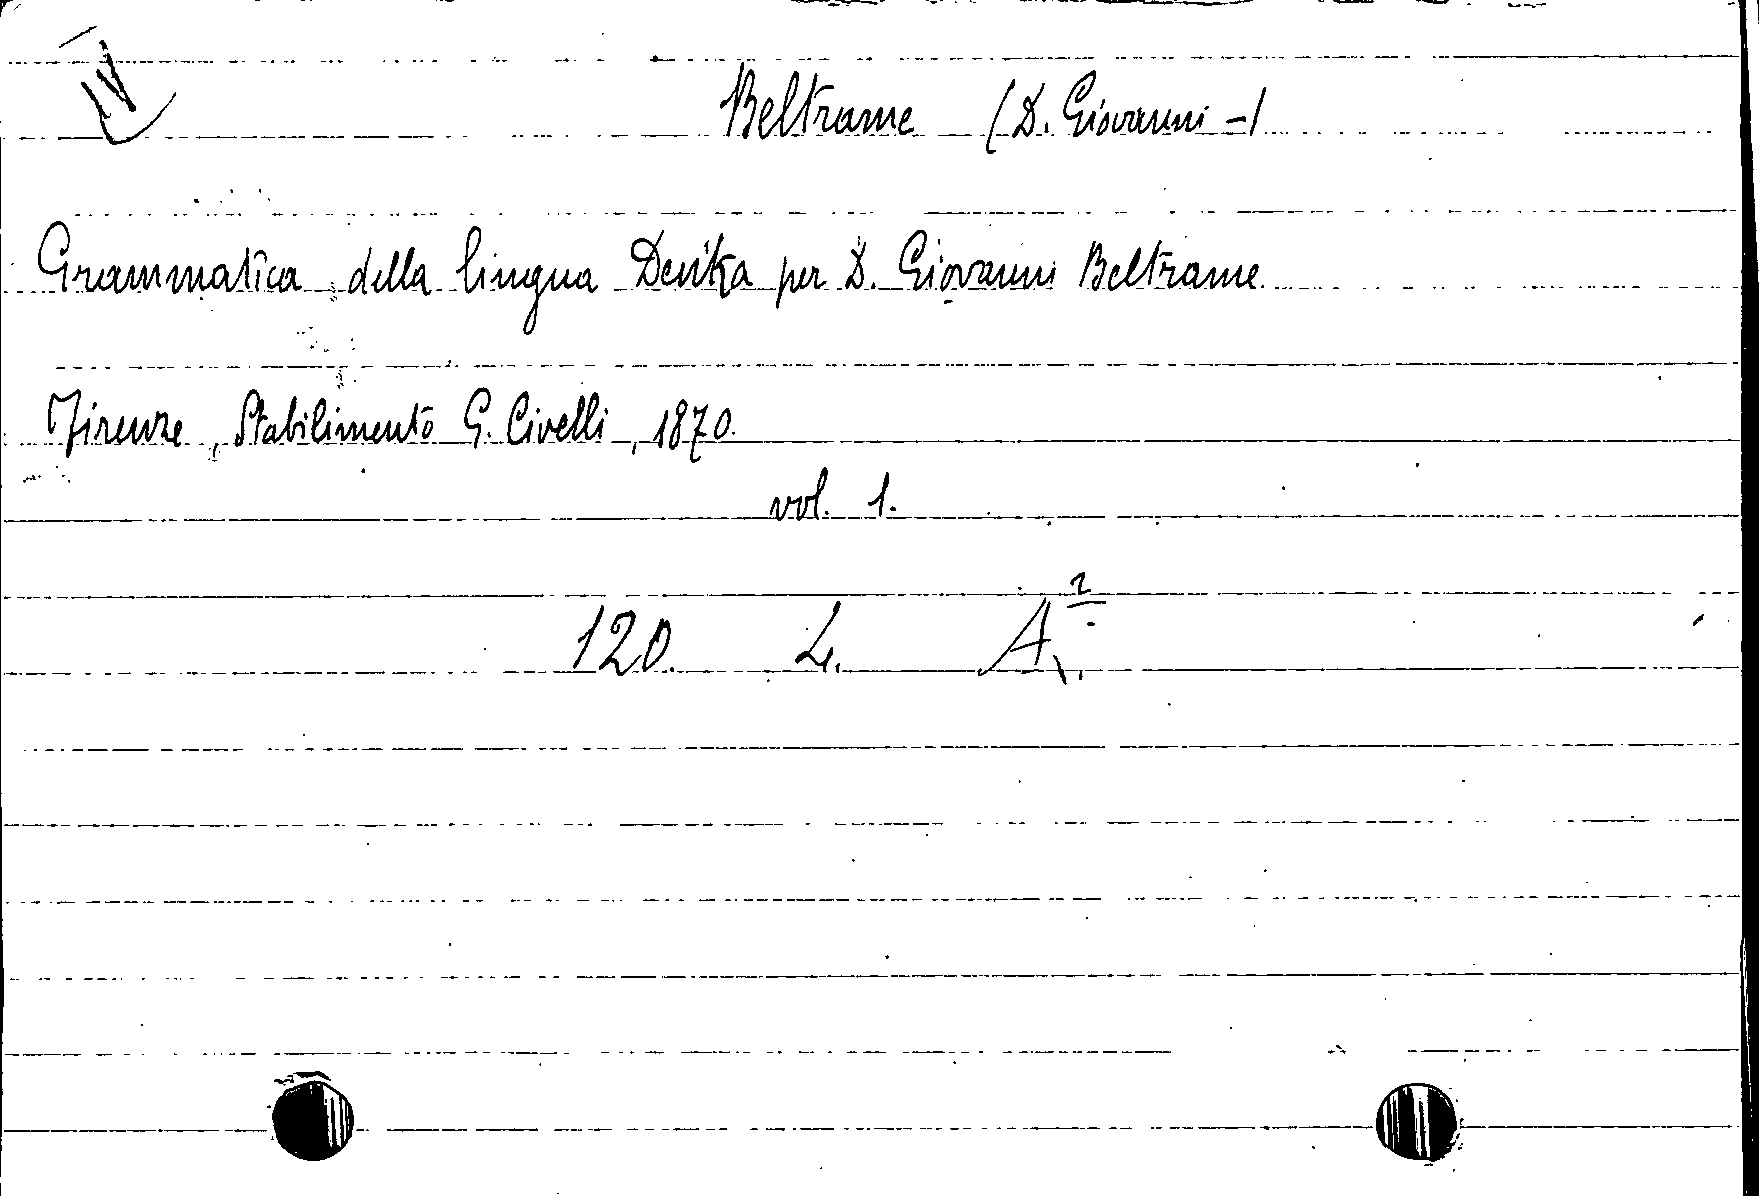 IV
Beltrame (D. Giovanni -)
Grammatica della lingua Denka per D. Giovanni Beltrame
Firenze, Stabilimento G. Civelli, 1870.
vol. 1.
120. L. A².